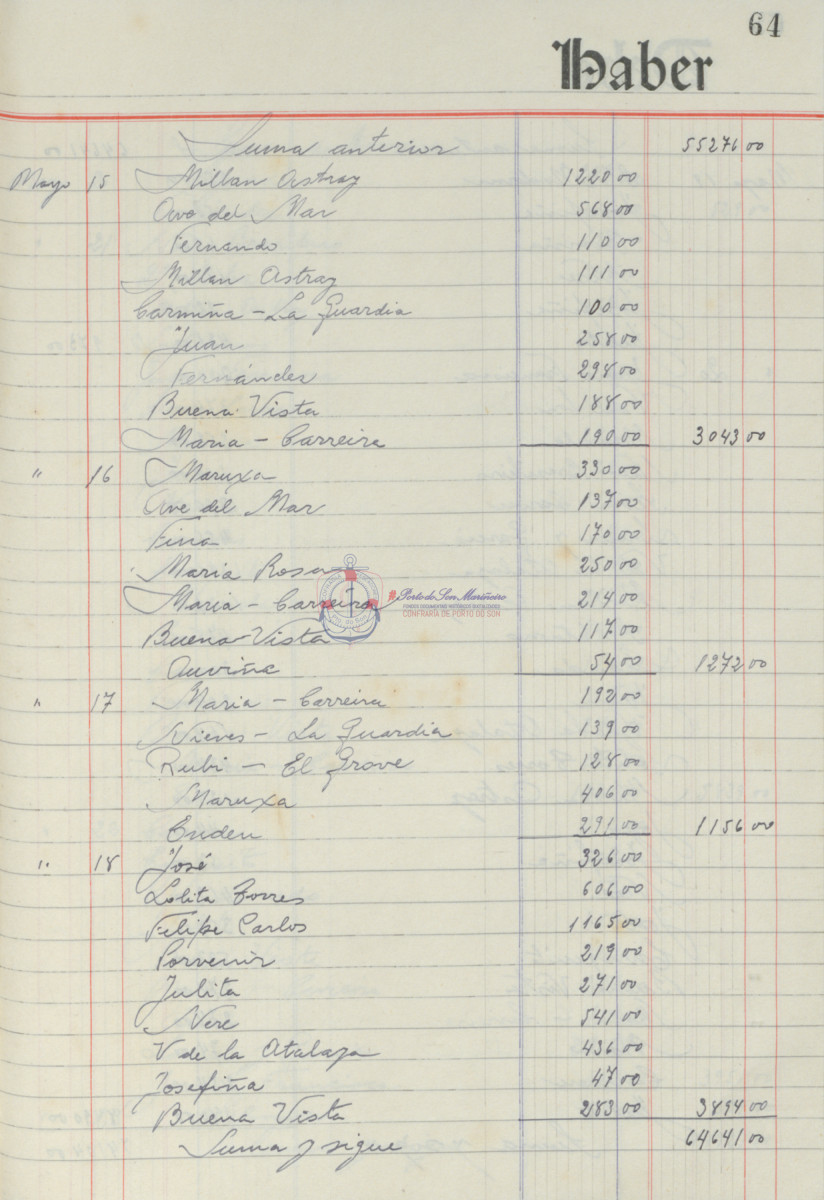 64
Haber
Suma anterior 55276 00
Mayo 15 Millan Astray 1220 00
Ave del Mar 568 00
Fernando 110 00
Millan Astray 111 00
Carmiña - La Guardia 100 00
Juan 258 00
Fernández 298 00
Buena Vista 188 00
Maria - Carreira 190 00 3043 00
" 16 Maruxa 330 00
Ave del Mar 137 00
Fina 170 00
Maria Rosa 250 00
Maria - Carreira 214 00
Porto do Son Mariñeiro
CONFRARÍA DE PORTO DO SON
Buena-Vista 117 00
54 00 1272 00
" 17 Maria - Carreira 192 00
Nieves - La Guardia 139 00
Rubi - El Grove 128 00
Maruxa 406 00
291 00 1156 00
" 18 José 326 00
Lolita Torres 606 00
Felipe Carlos 1165 00
Porvenir 219 00
Julita 271 00
541 00
V de la Atalaya 436 00
Josefiña 47 00
Buena Vista 283 00 3894 00
Suma y sigue 64641 00